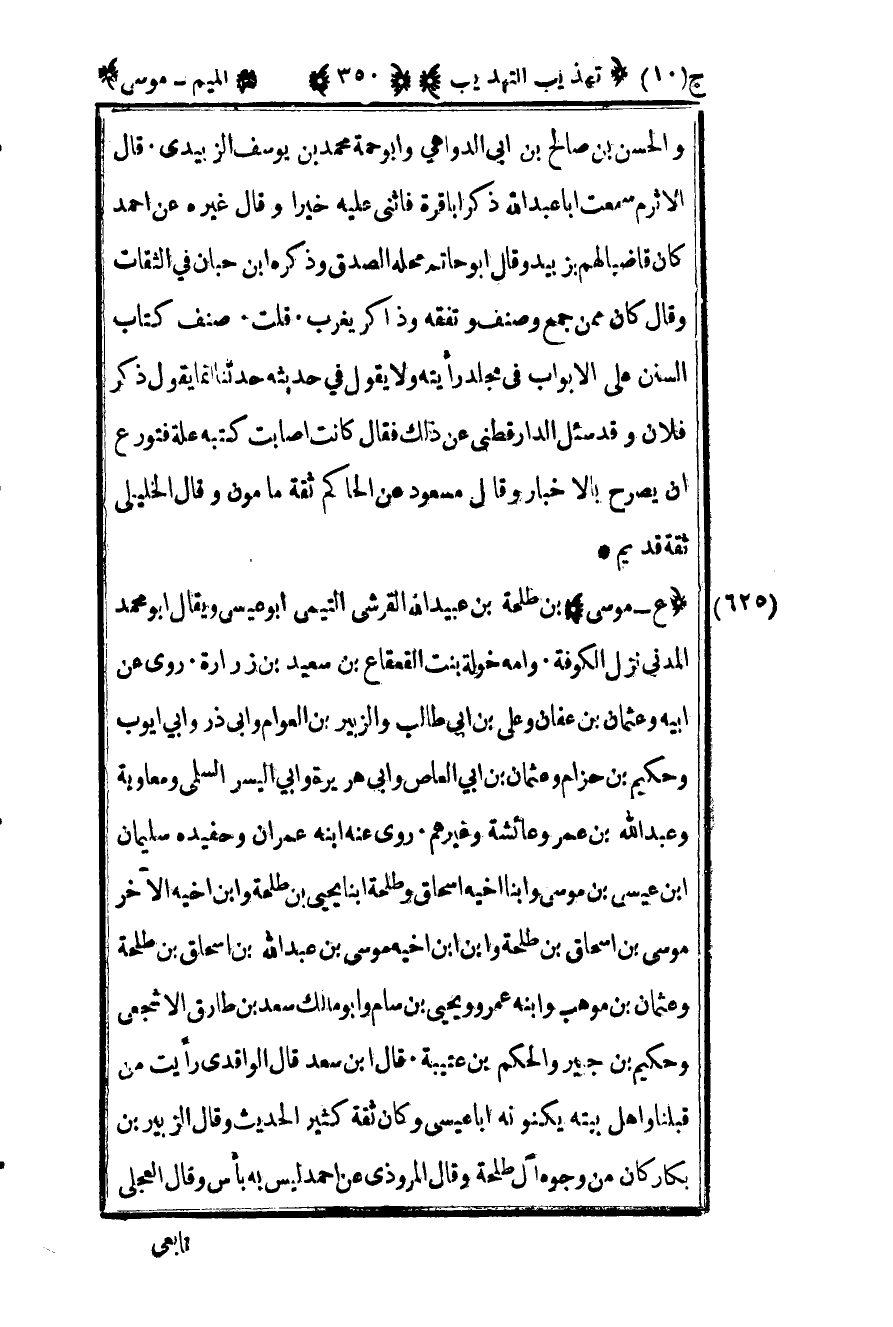 ج(١٠) ﴿ تهذيب التهذيب ﴾ ﴿ ٣٥٠ ﴾ ﴿ الميم ـ موسى ﴾
و الحسن بن صالح بن ابي الدواهي وابوحمة محمد بن يوسف الزبيدى ٠ قال
الاثرم سمعت اباعبدالله ذكر اباقرة فاثنى عليه خيرا و قال غيره عن احمد
كان قاضيا لهم بزبيد وقال ابوحاتم محله الصدق وذكره ابن حبان في الثقات
وقال كان ممن جمع وصنف و تفقه وذاكر يغرب ٠ قلت ٠ صنف كتاب
السنن على الابواب فى مجلد رأيته ولا يقول في حديثه حدثنا انما يقول ذكر
فلان و قد سئل الدارقطنى عن ذالك فقال كانت اصابت كتبه علة فتورع
ان يصرح بالاخبار وقال مسعود عن الحاكم ثقة مامون و قال الخليلى
ثقة قديم •
(٦٢٥) ﴿ ع ـ موسى ﴾ بن طلحة بن عبيدالله القرشى التيمى ابوعيسى ويقال ابومحمد
المدنى نزل الكوفة ٠ وامه خولة بنت القعقاع بن سعيد بن زرارة ٠ روى عن
ابيه وعثمان بن عفان وعلى بن ابي طالب والزبير بن العوام وابى ذر وابي ايوب
وحكيم بن حزام وعثمان بن ابي العاص وابى هريرة وابي اليسر السلمى ومعاوية
وعبدالله بن عمر وعائشة وغيرهم ٠ روى عنه ابنه عمران وحفيده سليمان
ابن عيسى بن موسى وابنا اخيه اسحاق وطلحة ابنا يحيى بن طلحة وابن اخيه الآخر
موسى بن اسحاق بن طلحة وابن ابن اخيه موسى بن عبدالله بن اسحاق بن طلحة
وعثمان بن موهب وابنه عمرو ويحيى بن سام وابومالك سعد بن طارق الاشجعى
وحكيم بن جبير والحكم بن عتيبة ٠ قال ابن سعد قال الواقدى رأيت من
قبلنا واهل بيته يكنونه اباعيسى وكان ثقة كثير الحديث وقال الزبير بن
بكار كان من وجوه آل طلحة وقال المروذى عن احمد ليس به بأس وقال العجلى
تابعى